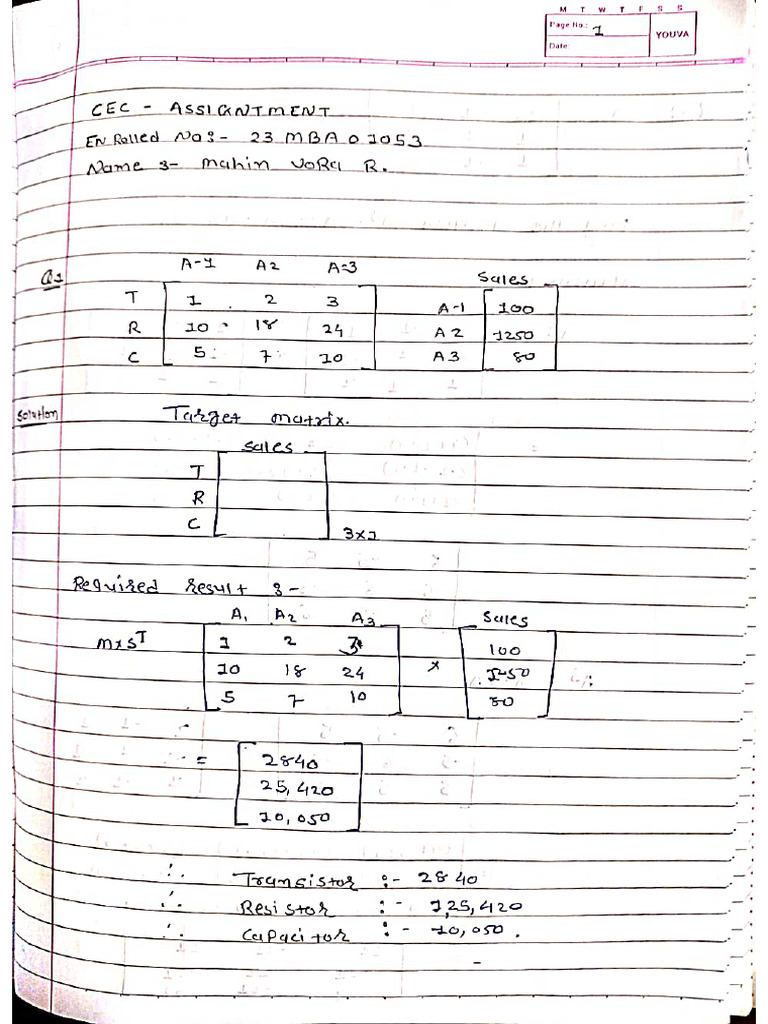 M T W T F S S
Page No.: 1
YOUVA
Date:
CEC - ASSIGNTMENT
EnRolled No :- 23MBA01053
Name :- Mahin VoRa R.
Q1
A-1 A2 A=3
Sales
T 1 2 3 A-1 100
R 10 18 24 A2 1250
C 5 7 10 A3 80
Solution Target matrix.
Sales
T
R
C
3x1
Required result :-
A1 A2 A3 Sales
MxS^T 1 2 3 100
10 18 24 x
5 7 10 80
= 2840
25,420
10,050
∴ Transistor :- 2840
∴ Resistor :- 1,25,420
∴ Capacitor :- 10,050.